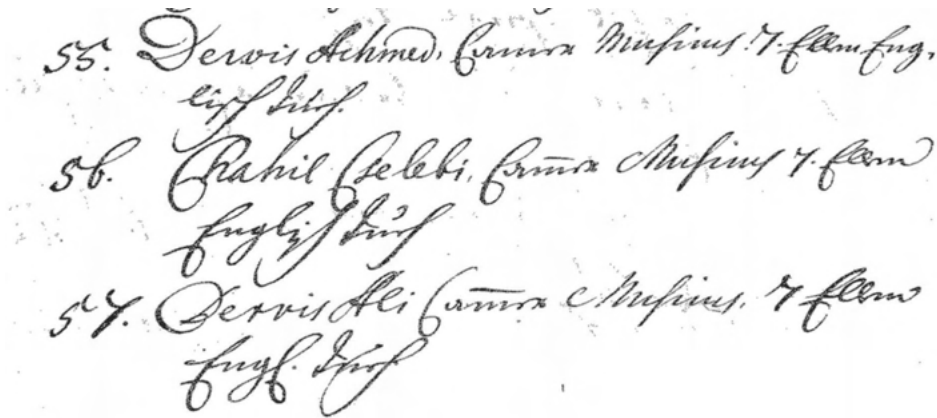 55. Dervis Achmed, Camer Musicus 7. Ellen Eng-
lisch Tuch.
56. Chatil Cselebi, Cam̅er Musicus 7. Ellen
Englisch Tuch
57. Dervis Ali Cam̅er Musicus. 7 Ellen
Engl. Tuch